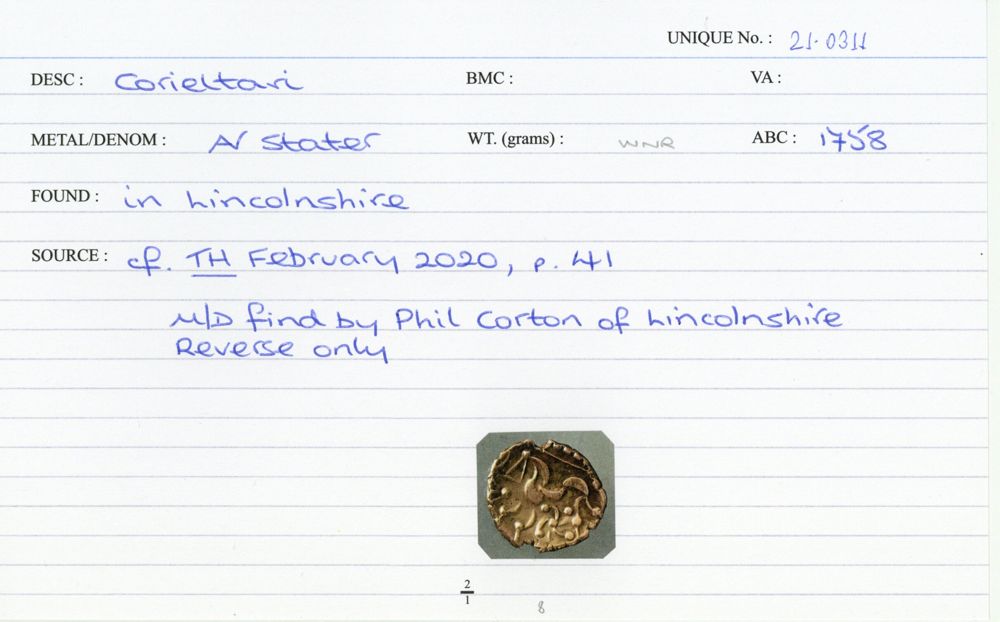 UNIQUE No. : 21.0311
DESC : Corieltavi BMC : VA :
METAL/DENOM : AV Stater WT. (grams) : WNR ABC : 1758
FOUND : in Lincolnshire
SOURCE : cf. TH February 2020, p. 41
M/D find by Phil Corton of Lincolnshire
Reverse only
2
1
8